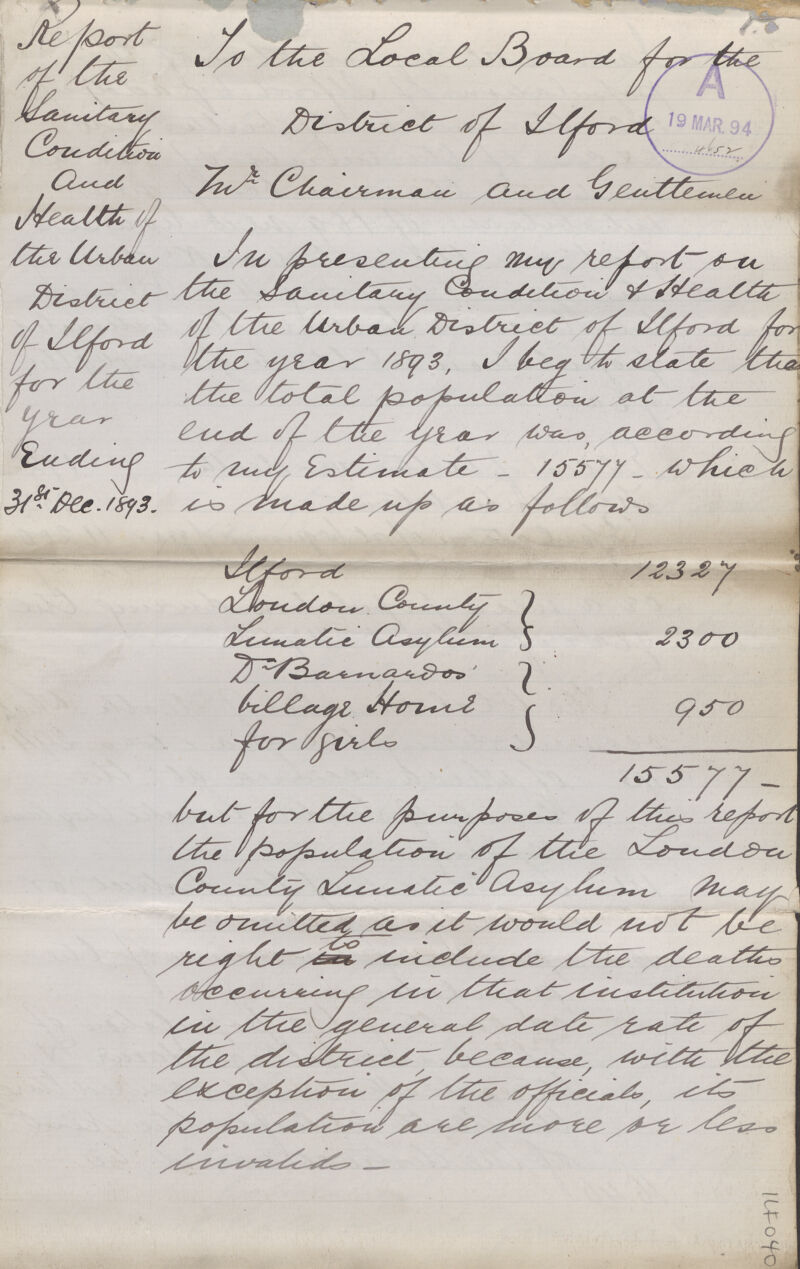 Report
of the
Sanitary
Condition
And
Health of
the Urban
District
of Ilford
for the
year
Ending
31st Dec. 1893.
To the Local Board for the
District of Ilford
A
19 MAR. 94
Mr Chairman and Gentlemen
In presenting my report on
the Sanitary Condition & Health
of the Urban District of Ilford for
the year 1893, I beg to state tha
the total population at the
end of the year was, according
to my Estimate - 15577 - which
is made up as follows
Ilford 12327
London County
Lunatic Asylum } 2300
Dr Barnardos'
Village Home } 950
for girls
15577 -
but for the purposes of this report
the population of the London
County Lunatic Asylum may
be omitted as it would not be
right to include the deaths
occurring in that institution
in the general date rate of
the district, because, with the
exception of the officials, its
population are more or less
invalids -
ILF040